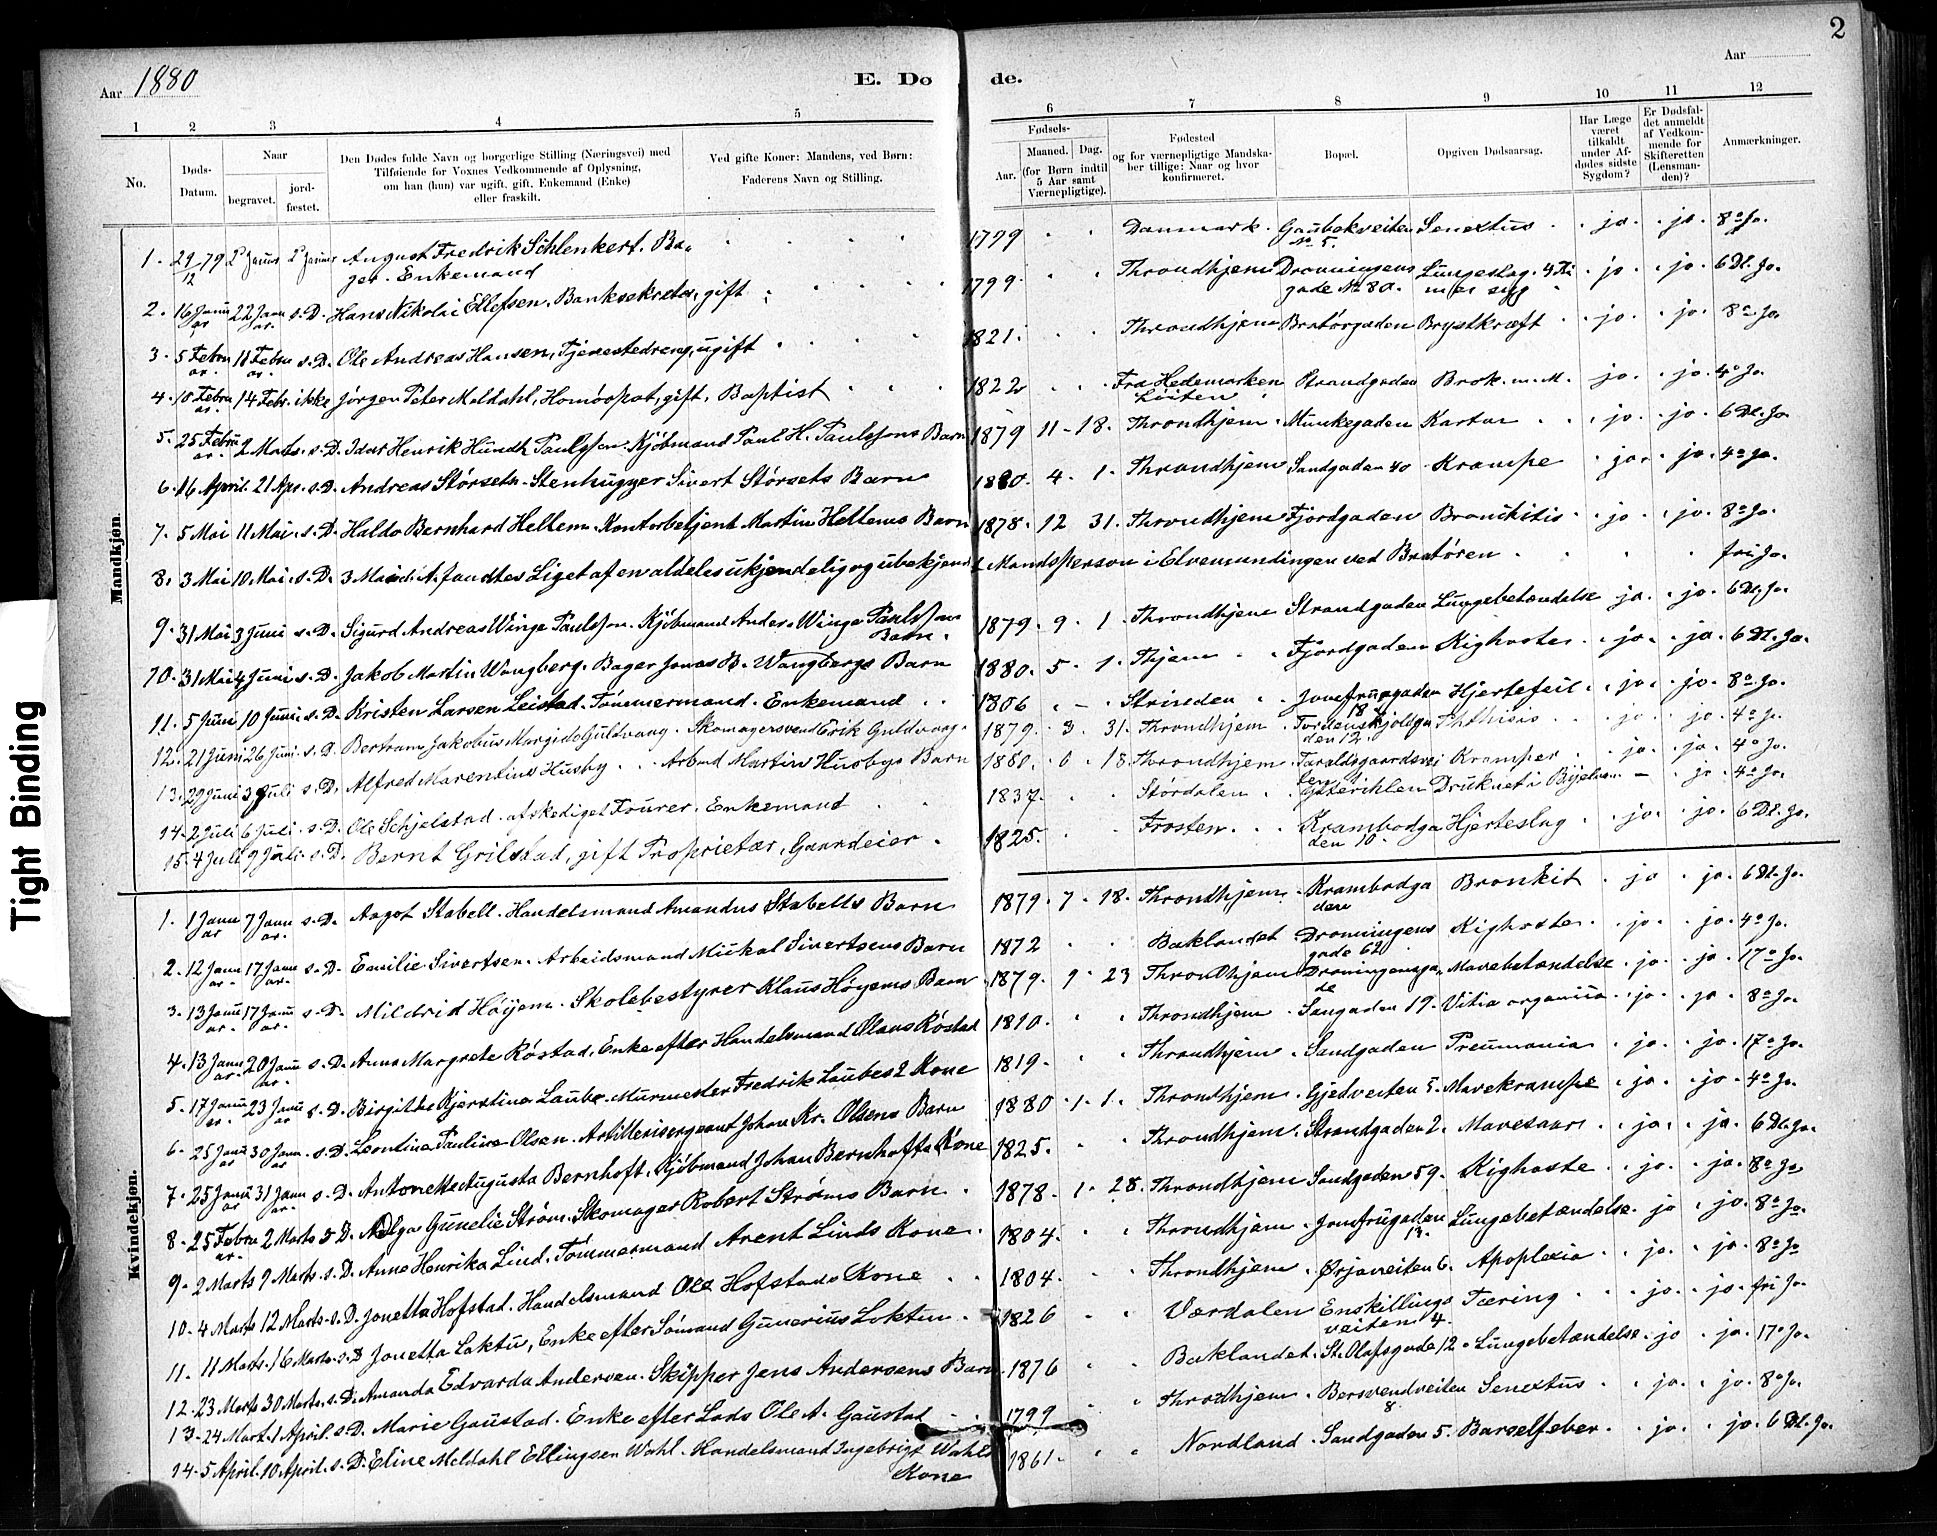 2
Aar 1880
E. Dø
de.
Aar
1 2 3 4 5 6 7 8 9 10 11 12
No.
Døds-Datum.
Naar
begravet.
jord-fæstet.
Den Dødes fulde Navn og borgerlige Stilling (Næringsvei) med
Tilføiende for Voxnes Vedkommende af Oplysning,
om han (hun) var ugift, gift, Enkemand (Enke)
eller fraskilt.
Ved gifte Koner: Mandens, ved Børn:
Faderens Navn og Stilling.
Fødsels-
Aar. Maaned. Dag.
(for Børn indtil
5 Aar samt
Værnepligtige).
Fødested
og for værnepligtige Mandska-
ber tillige: Naar og hvor
konfirmeret.
Bopæl.
Opgiven Dødsaarsag.
Har Læge
været
tilkaldt
under Af-
dødes sidste
Sygdom?
Er Dødsfal-
det anmeldt
af Vedkom-
mende for
Skifteretten
(Lensman-
den)?
Anmærkninger.
Mandkjøn.
1. 29/12 79 2 Januar 2 Januar August Fredrik Schlenkert. Ba-
ger. Enkemand 1799 Danmark. Gaubækveiten No 5. Senectus ja. ja. 8 o Jo.
2. 16 Januar 22 Januar s.D. Hans Nikolai Ellefsen. Banksekretær, gift 1799. Throndhjem Dronningens gade No 80. Lungeslag. ja. ja. 6 Dl. Jo.
3. 5 Februar 11 Februar s.D. Ole Andreas Hansen, Tjenestedreng, ugift 1821. Throndhjem Bratørgaden Brystkræft ja. ja. 8 o Jo.
4. 10 Februar 14 Febr. ikke Jørgen Peter Meldahl, Homöopat, gift, Baptist 1822 Fra Hedemarken Løiten Strandgaden Brok. m.M. ja. ja. 4 o Jo.
5. 25 Februar 2 Marts. s.D. Idar Henrik Hundh Paulssen. Kjøbmand Paul H. Paulssons Barn 1879 11 - 18. Throndhjem. Munkegaden Kartar ja. ja. 6 Dl. Jo.
6. 16 April. 21 Apr. s.D. Andreas Størseth. Stenhugger Sivert Størsets Barn 1880. 4. 1. Throndhjem Sandgaden 40 Krampe ja. ja. 4 o Jo.
7. 5 Mai 11 Mai. s.D. Haldo Bernhard Hellem. Kontorbetjent Martin Hellems Barn 1878. 12 31. Throndhjem Fjordgaden Bronchitis ja. ja. 8 o Jo.
8. 3 Mai 10 Mai. s.D. 3 Mai d. A. fandtes Liget af en aldeles ukjendelig og ubekjendt Mandsperson i Elvemundingen ved Bratøren fri Jo.
9. 31 Mai 3 Juni s.D. Sigurd Andreas Winge Paulsson. Kjøbmand Anders Winge Paulssons Barn. 1879. 9. 1. Throndhjem Strandgaden Lungebetændelse ja. ja. 6 Dl. Jo.
10. 31 Mai 4 Juni s.D. Jakob Martin Wangberg. Bager Jonas B. Wangbergs Barn 1880. 5. 1. Thjem Fjordgaden Kighoste. ja. ja. 6 Dl. Jo.
11. 5 Juni 10 Juni. s.D. Kristen Larsen Leistad. Tømmermand. Enkemand 1806 Strinden Jomfrugaden 18 Hjertefeil ja. ja. 8 o Jo.
12. 21 Juni 26 Juni. s.D. Bertram Jakobus Margido Guldvaag. Skomagersvend Erik Guldvaag. 1879. 3. 31. Throndhjem Tordenskjoldga den 12. Phthisis ja. 4 o Jo.
13. 29 Juni 3 Juli s.D. Alfred Marentius Husby. Arbmd Martin Husbys Barn 1880. 6. 18 Throndhjem Taraldsgaardsvei Kramper ja. ja. 4 o Jo.
14. 2 Juli 6 Juli. s.D. Ole Schjelstad. afskediget Fourer. Enkemand 1837. Stördalen Ytterihlen Druknet i Bielven - ja. 4 o Jo.
15. 4 Juli 9 Juli. s.D. Bernt Grilstad, gift Proprietær, Gaardeier. 1825. Frosten. Krambodga den 10. Hjerteslag ja. ja. 6 Dl. Jo.
Kvindekjøn.
1. 1 Januar 7 Januar. s.D. Aagot Stabell. Handelsmand Amandus Stabells Barn 1879. 7. 18. Throndhjem. Krambodga den Bronkit ja ja. 6 Dl. Jo.
2. 12 Januar. 17 Januar. s.D. Emilie Sivertsen. Arbeidsmand Mickal Sivertsens Barn 1872 Baklandet Dronningens gade 62 Kighoste. ja. ja. 4 o Jo.
3. 13 Januar. 17 Januar. s.D. Mildrid Höyem. Skolebestyrer Klaus Höyems Barn 1879. 9. 23 Throndhjem Droningensga de Mavebetændelse ja. ja. 17 o Jo.
4. 13 Januar. 20 Januar. s.D. Anna Margrete Röstad. Enke efter Handelsmand Olaus Röstad 1810. Throndhjem. Sangaden 19. Vitia organica ja. ja. 8 o Jo.
5. 17 Januar. 23 Januar s.D. Birgithe Kjerstina Laube. Murmester Fredrik Laubes 2 Kone 1819. Throndhjem. Sandgaden Pneumonia ja. ja. 17 o Jo.
6. 25 Januar 30 Januar. s.D. Leontine Pauline Olsen. Artillerisergeant Johan Kr. Olsens Barn 1880. 1. 1. Throndhjem. Gjedveiten 5. Mavekrampe ja. ja. 4 o Jo.
7. 25 Januar 31 Januar. s.D. Antonette Augusta Bernhoft. Kjöbmand Johan Bernhofts Kone 1825. Throndhjem. Strandgaden 2. Mavesaar ja. ja. 6 Dl. Jo.
8. 25 Februar. 2 Marts s.D. Gunelie Ström. Skomager Robert Ströms Barn 1878. 1. 28. Throndhjem Sandgaden 59. Kighoste ja. ja. 8 o Jo
9. 2 Marts 9 Marts. s.D. Anne Henrika Lind. Tömmermand Arent Linds Kone. 1804. Throndhjem. Jomfrugaden 13. Lungebetændelse. ja ja. 8 o Jo.
10. 4 Marts 12 Marts. s.D. Jonetta Hofstad. Handelsmand Ole Hofstads Kone 1804. Throndhjem. Ørjaveiten 6. Apoplexia ja. ja. 8 o Jo
11. 11 Marts. 16 Marts. s.D Jonetta Loktu, Enke efter Sömand Gunerius Loktu. 1826 Værdalen Enskillings veiten 4. Tæring ja. ja. fri Jo.
12. 23 Marts 30 Marts. s.D. Amanda Edvarda Andersen. Skipper Jens Andersens Barn 1876 Baklandet. St. Olafsgade 12. Lungebetændelse. ja ja. 17 o Jo.
13. 24 Mart. 1 April. s.D. Marie Gaustad. Enke efter Lods Ole A. Gaustad 1799 Throndhjem. Bersvendveiten 8 Senectus ja. ja. 8 o Jo.
14. 5 April. 10 April. s.D. Eline Meldahl Ellingsen Wahl. Handelsmand Ingebrigt Wahls
Kone 1861. Nordland. Sandgaden 5. Barselfeber. ja. ja. 6 Dl. Jo.
Tight Binding